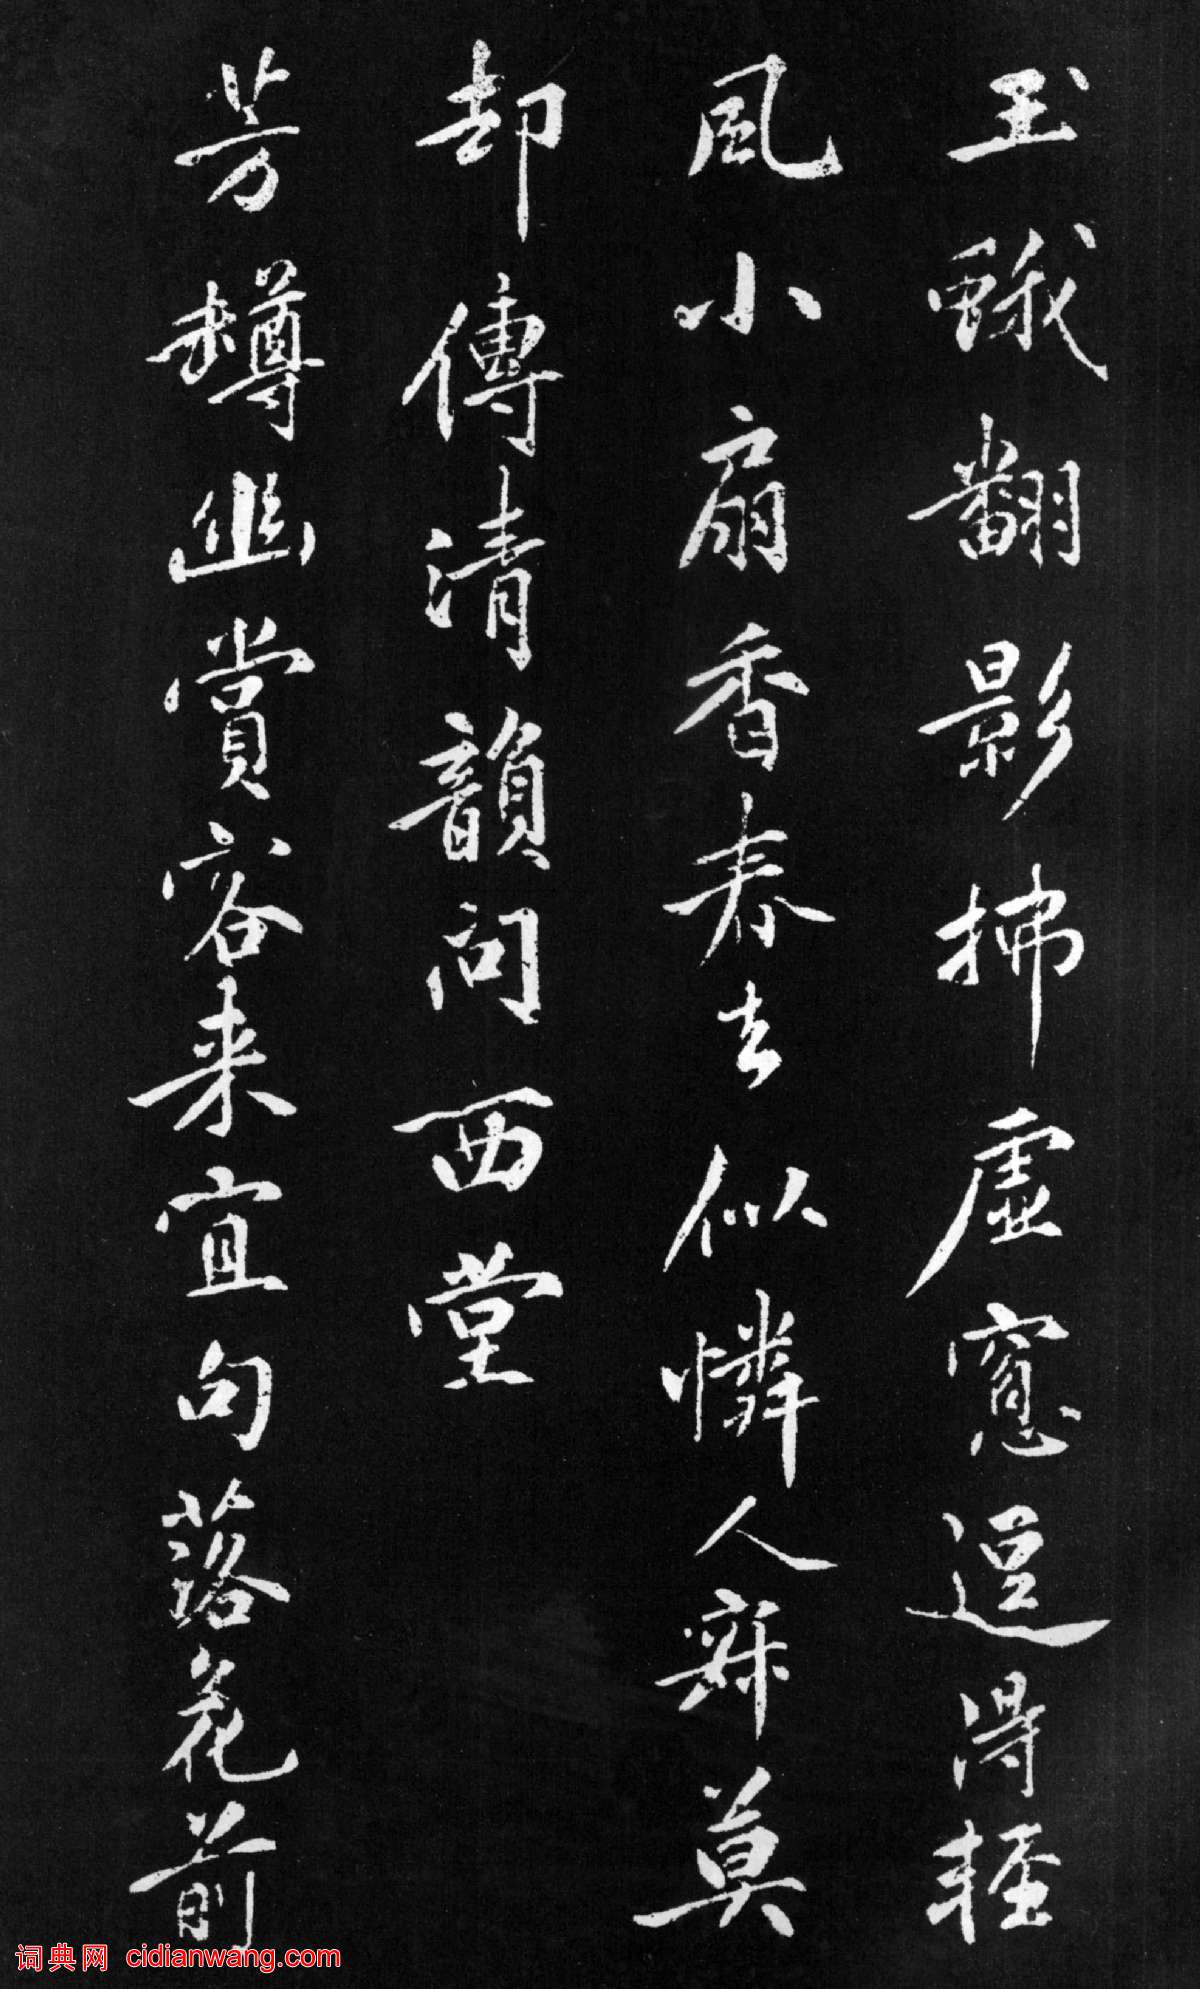 玉蛾翻影拂虛窻逗得輕
風小扇香春去似憐人寂莫
却傳清韻問西堂
芳罇幽賞客来宜句落花前
词典网 cidianwang.com